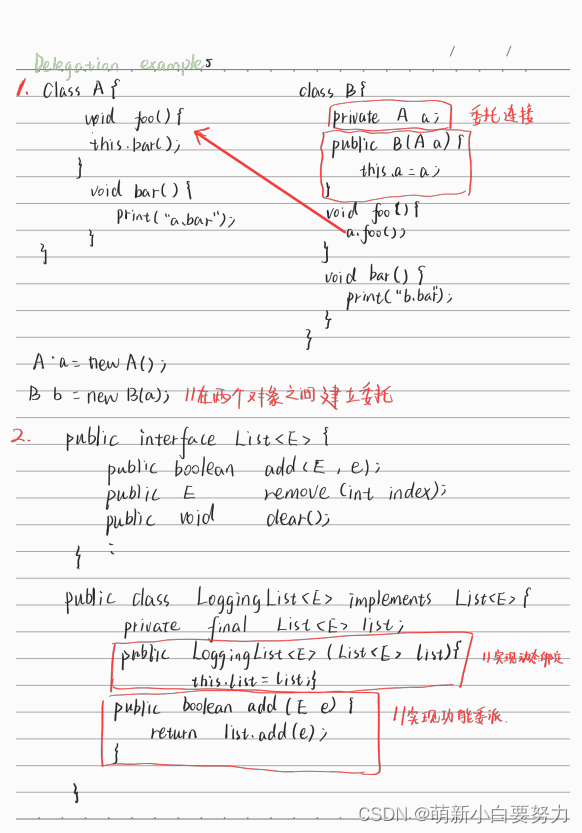 Delegation examples
1. Class A {
void foo() {
this.bar();
}
void bar() {
print("a.bar");
}
}
class B {
private A a; 委托连接
public B(A a) {
this.a = a;
}
void foo() {
a.foo();
}
void bar() {
print("b.bar");
}
}
A a = new A();
B b = new B(a); //在两个对象之间建立委托
2. public interface List<E> {
public boolean add(E, e);
public E remove (int index);
public void clear();
} ⋮
public class LoggingList<E> implements List<E> {
private final List<E> list;
public LoggingList<E> (List<E> list) { //实现动态绑定
this.list = list;}
public boolean add (E e) { //实现功能委派.
return list.add(e);
}
}
CSDN @萌新小白要努力